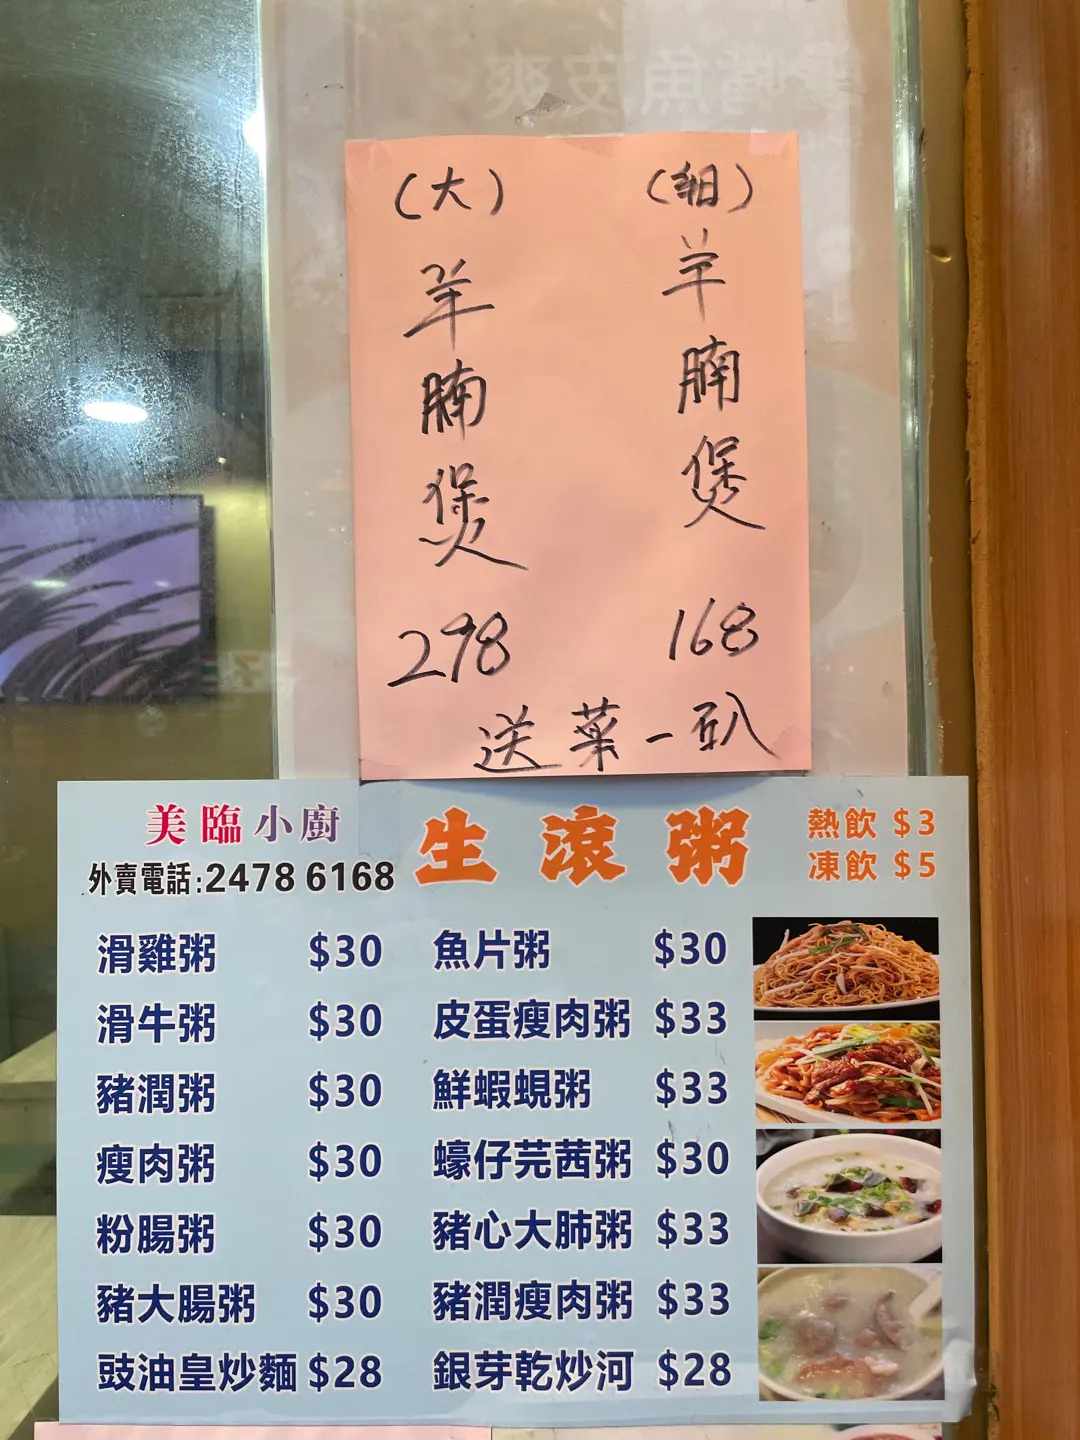 (大)
羊腩煲
298
(細)
羊腩煲
168
送菜一趴
美臨小廚
外賣電話:2478 6168
生滾粥
熱飲 $3
凍飲 $5
滑雞粥 $30
滑牛粥 $30
豬潤粥 $30
瘦肉粥 $30
粉腸粥 $30
豬大腸粥 $30
豉油皇炒麵 $28
魚片粥 $30
皮蛋瘦肉粥 $33
鮮蝦蜆粥 $33
蠔仔芫茜粥 $30
豬心大肺粥 $33
豬潤瘦肉粥 $33
銀芽乾炒河 $28